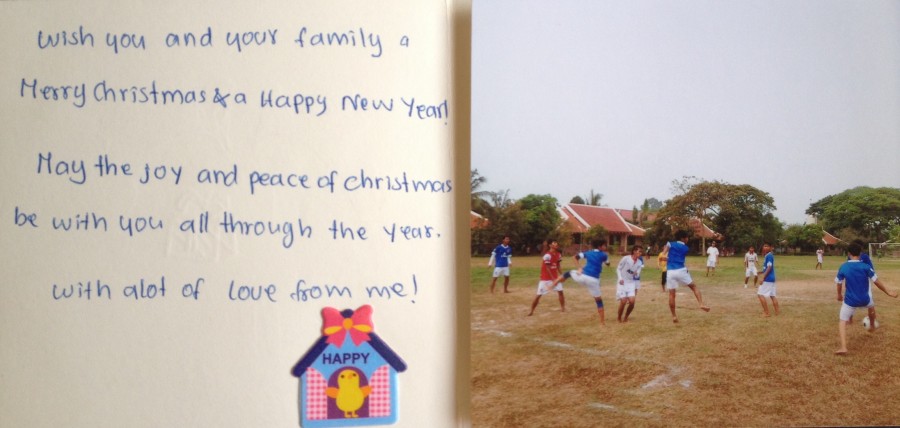 wish you and your family a
Merry Christmas & a Happy New Year!
May the joy and peace of christmas
be with you all through the year.
with alot of love from me!
HAPPY